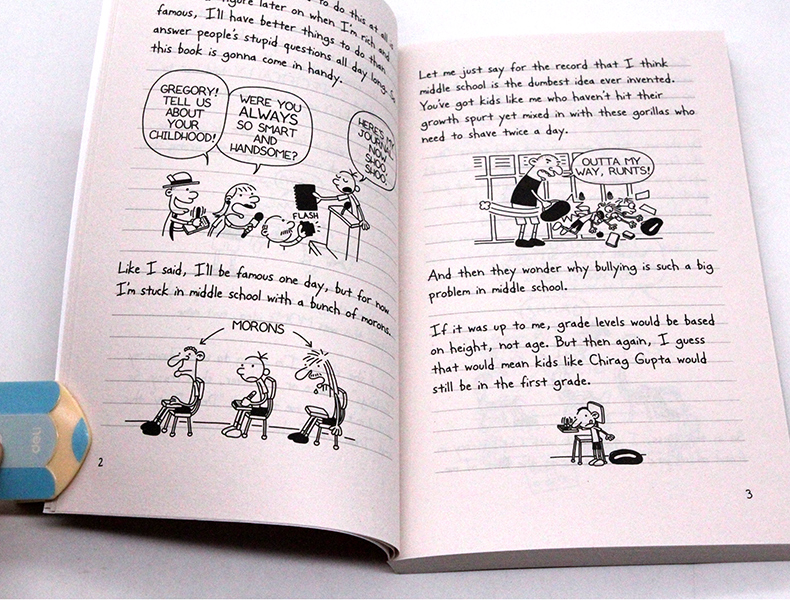 to do this at all is
figure later on when I'm rich and
famous, I'll have better things to do than
answer people's stupid questions all day long. So
this book is gonna come in handy.
GREGORY!
TELL US
ABOUT
YOUR
CHILDHOOD!
WERE YOU
ALWAYS
SO SMART
AND
HANDSOME?
HERE'S MY
JOURNAL.
NOW
SHOO,
SHOO.
FLASH
Like I said, I'll be famous one day, but for now
I'm stuck in middle school with a bunch of morons.
MORONS
2
deli
Let me just say for the record that I think
middle school is the dumbest idea ever invented.
You've got kids like me who haven't hit their
growth spurt yet mixed in with these gorillas who
need to shave twice a day.
OUTTA MY
WAY, RUNTS!
And then they wonder why bullying is such a big
problem in middle school.
If it was up to me, grade levels would be based
on height, not age. But then again, I guess
that would mean kids like Chirag Gupta would
still be in the first grade.
3